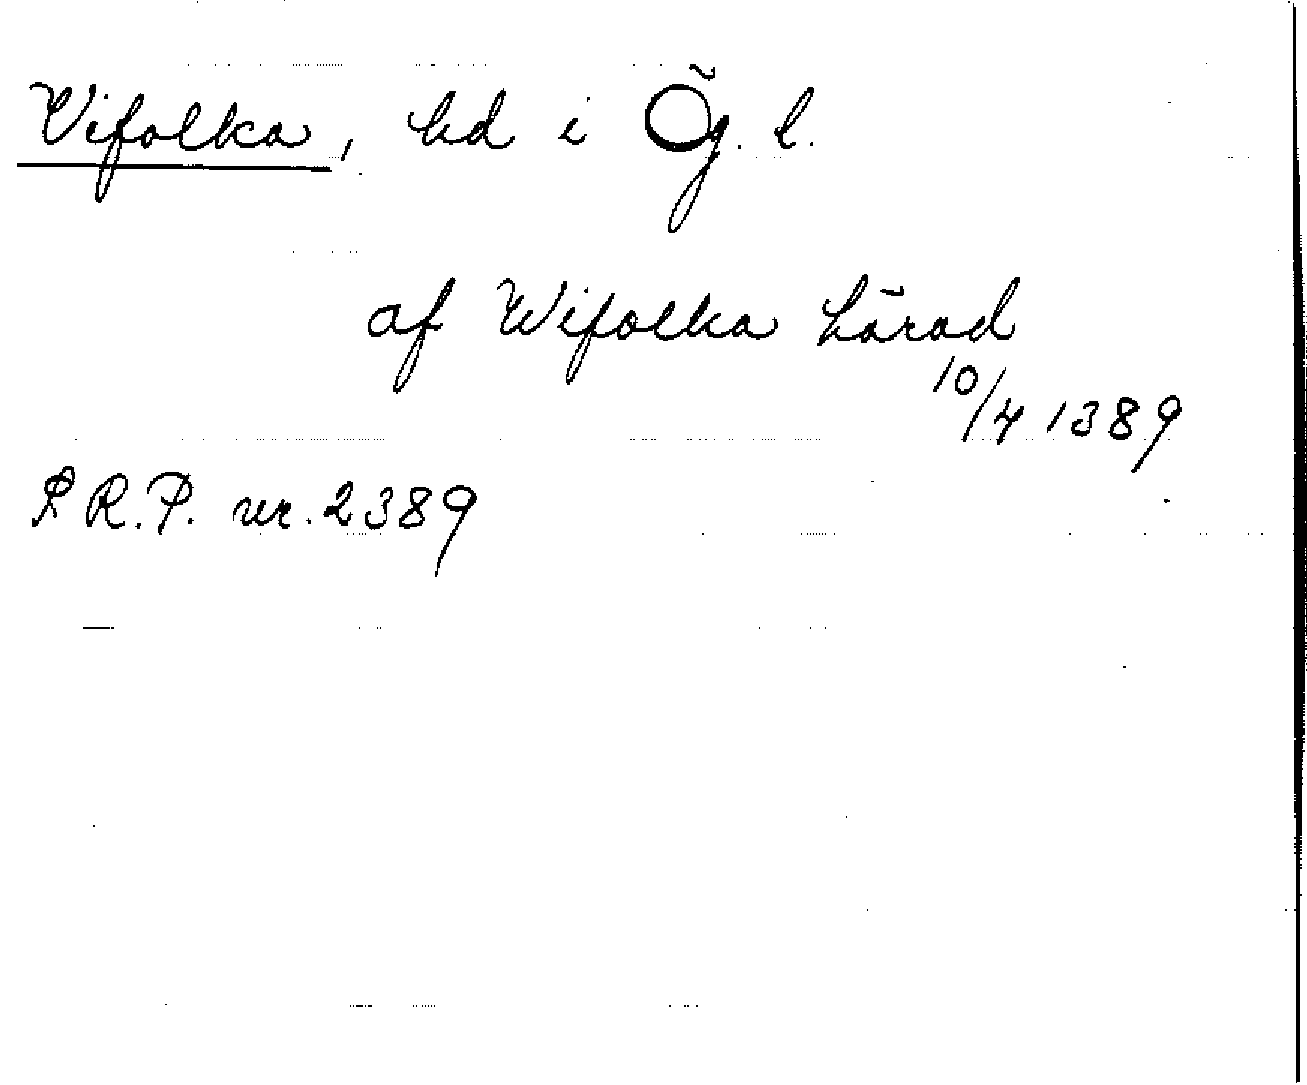 Vifolka, hd i Ög. l.
af Wifolka härad
10/4 1389
P R.P. nr. 2389